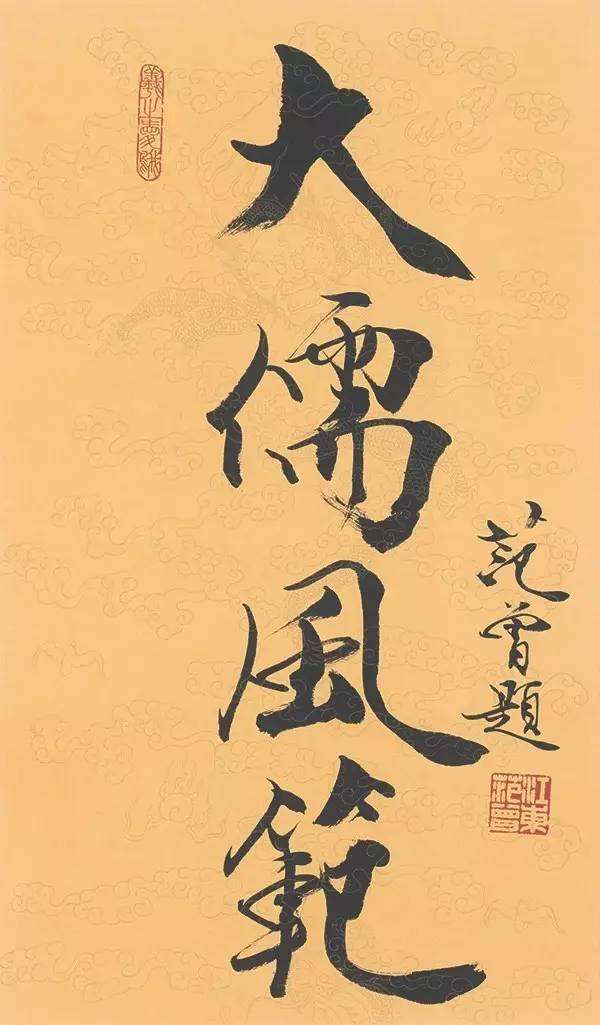 大儒風範
范曾題
江東范曾